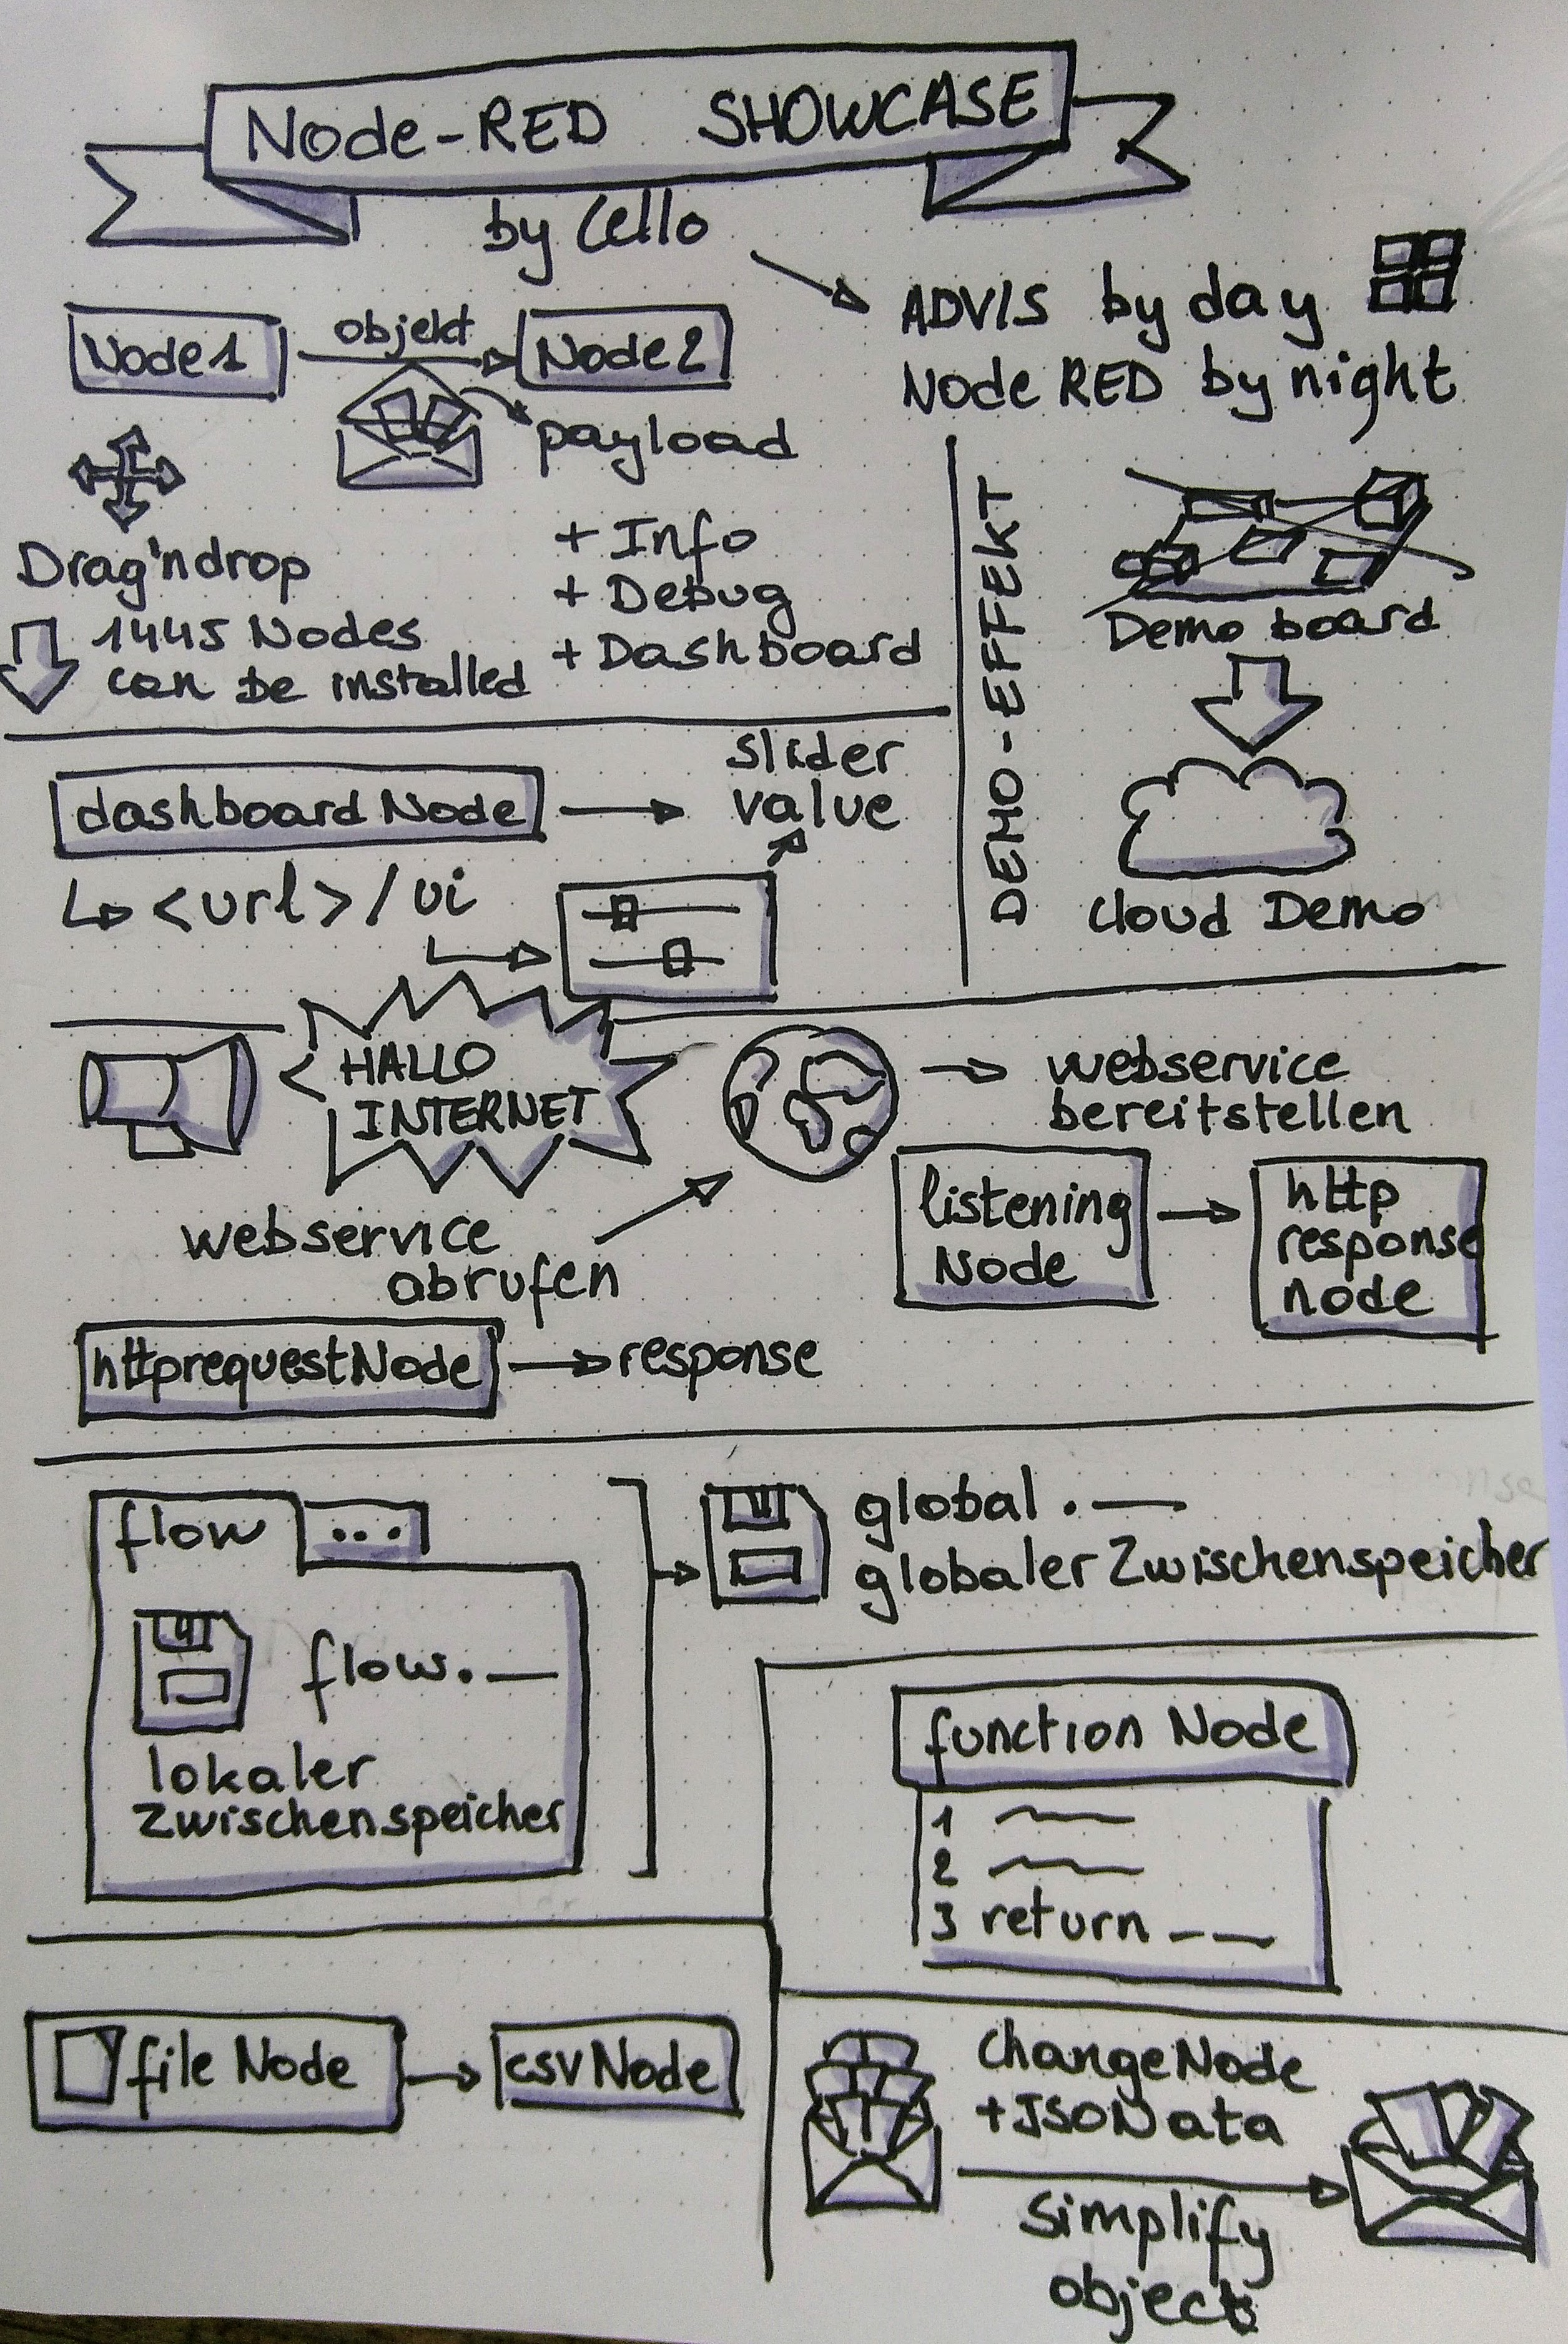 Node-RED SHOWCASE
by Cello
ADVIS by day
Node RED by night
Node1
objekt
Node2
payload
Drag'n drop
1445 Nodes
can be installed
+ Info
+ Debug
+ Dashboard
DEMO-EFFEKT
Demo board
Cloud Demo
dashboard Node
slider
value
<url>/ui
HALLO
INTERNET
webservice
bereitstellen
listening
Node
http
response
node
webservice
abrufen
httprequestNode
response
flow
...
flow.__
lokaler
Zwischenspeicher
global.__
globaler Zwischenspeicher
function Node
1
2
3 return __
file Node
csvNode
changeNode
+JSONata
Simplify
objects